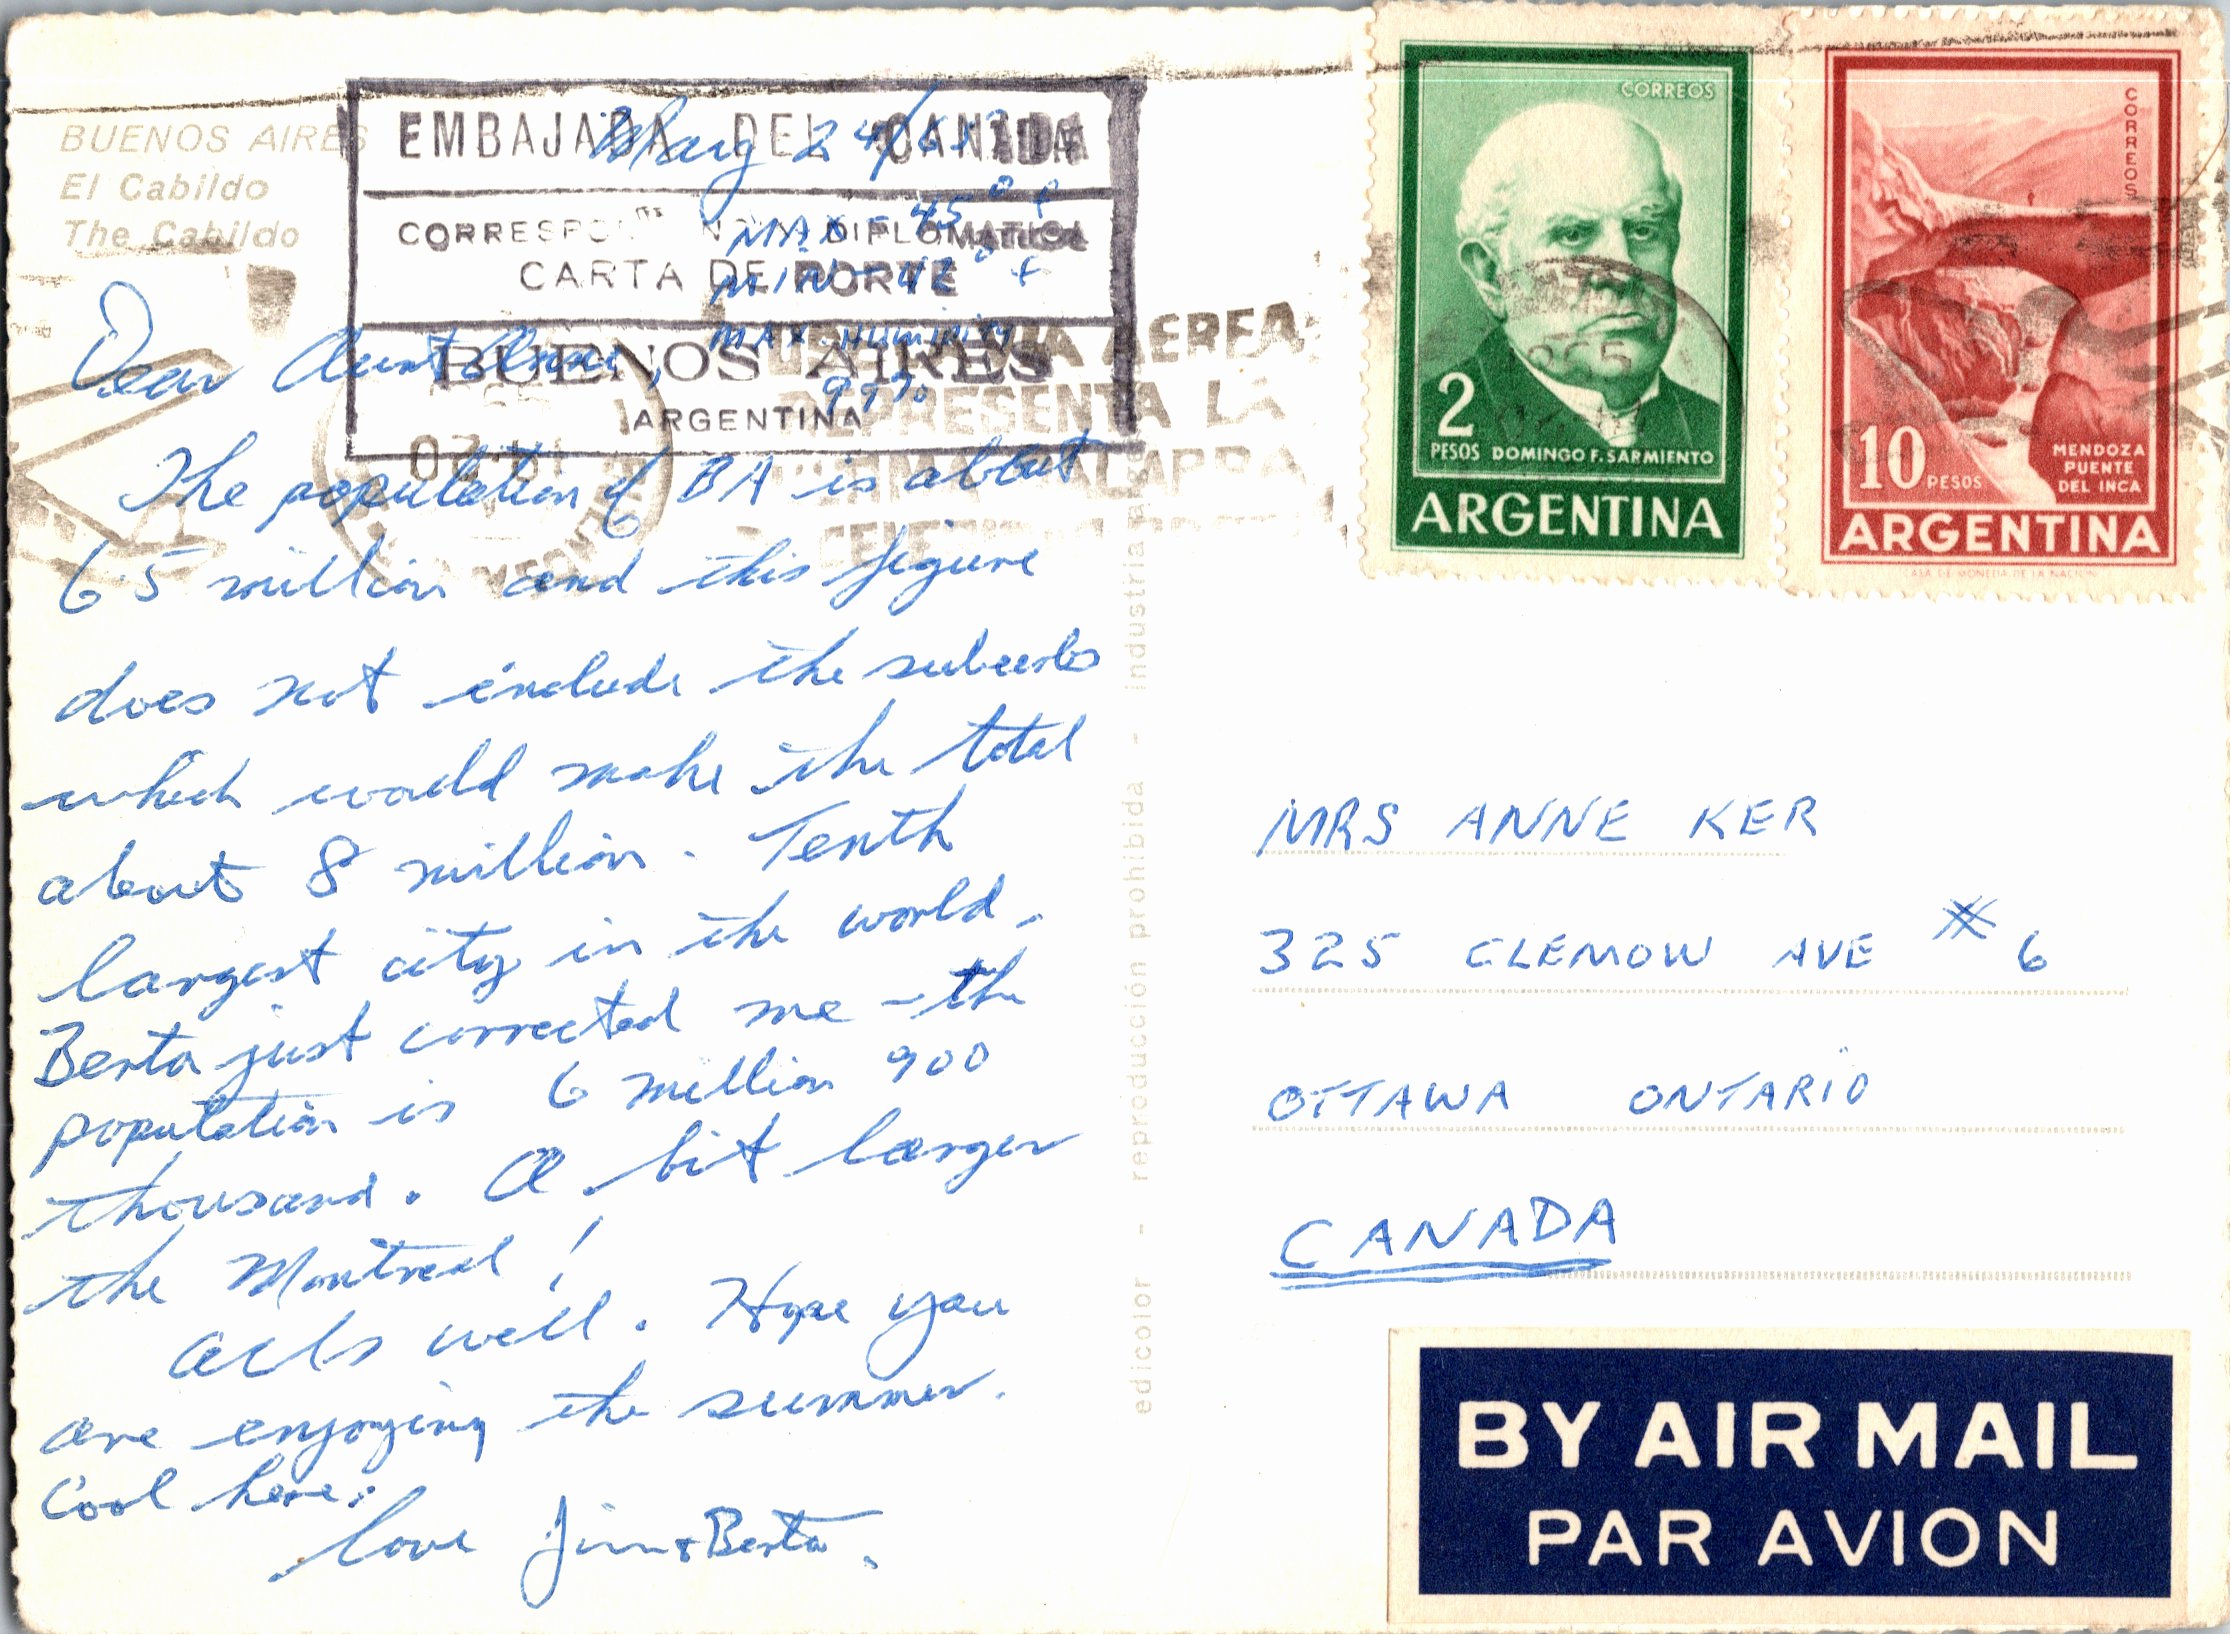 BUENOS AIRES
El Cabildo
The Cabildo
EMBAJADA DEL CANADA
CORRESPON DIPLOMATICA
CARTA DE PORTE
BUENOS AIRES
ARGENTINA
May 24/65
MAX - 45° F
MIN - 42° F
MAX. HUMIDITY
99%
Dear Aunt Anne,
The population of BA is about
6.5 million and this figure
does not include the suburbs
which would make the total
about 8 million. Tenth
largest city in the world.
Berta just corrected me - the
population is 6 million 900
thousand. A bit larger
the Montreal!
All's well. Hope you
are enjoying the summer.
Cool here.
Love Jim & Berta.
AEREA
REPRESENTA LA
1965
edicolor - reproducción prohibida - industria
CORREOS
2
PESOS DOMINGO F. SARMIENTO
ARGENTINA
CORREOS
10 PESOS
MENDOZA
PUENTE
DEL INCA
ARGENTINA
CASA DE MONEDA DE LA NACION
MRS ANNE KER
325 CLEMOW AVE # 6
OTTAWA ONTARIO
CANADA
BY AIR MAIL
PAR AVION